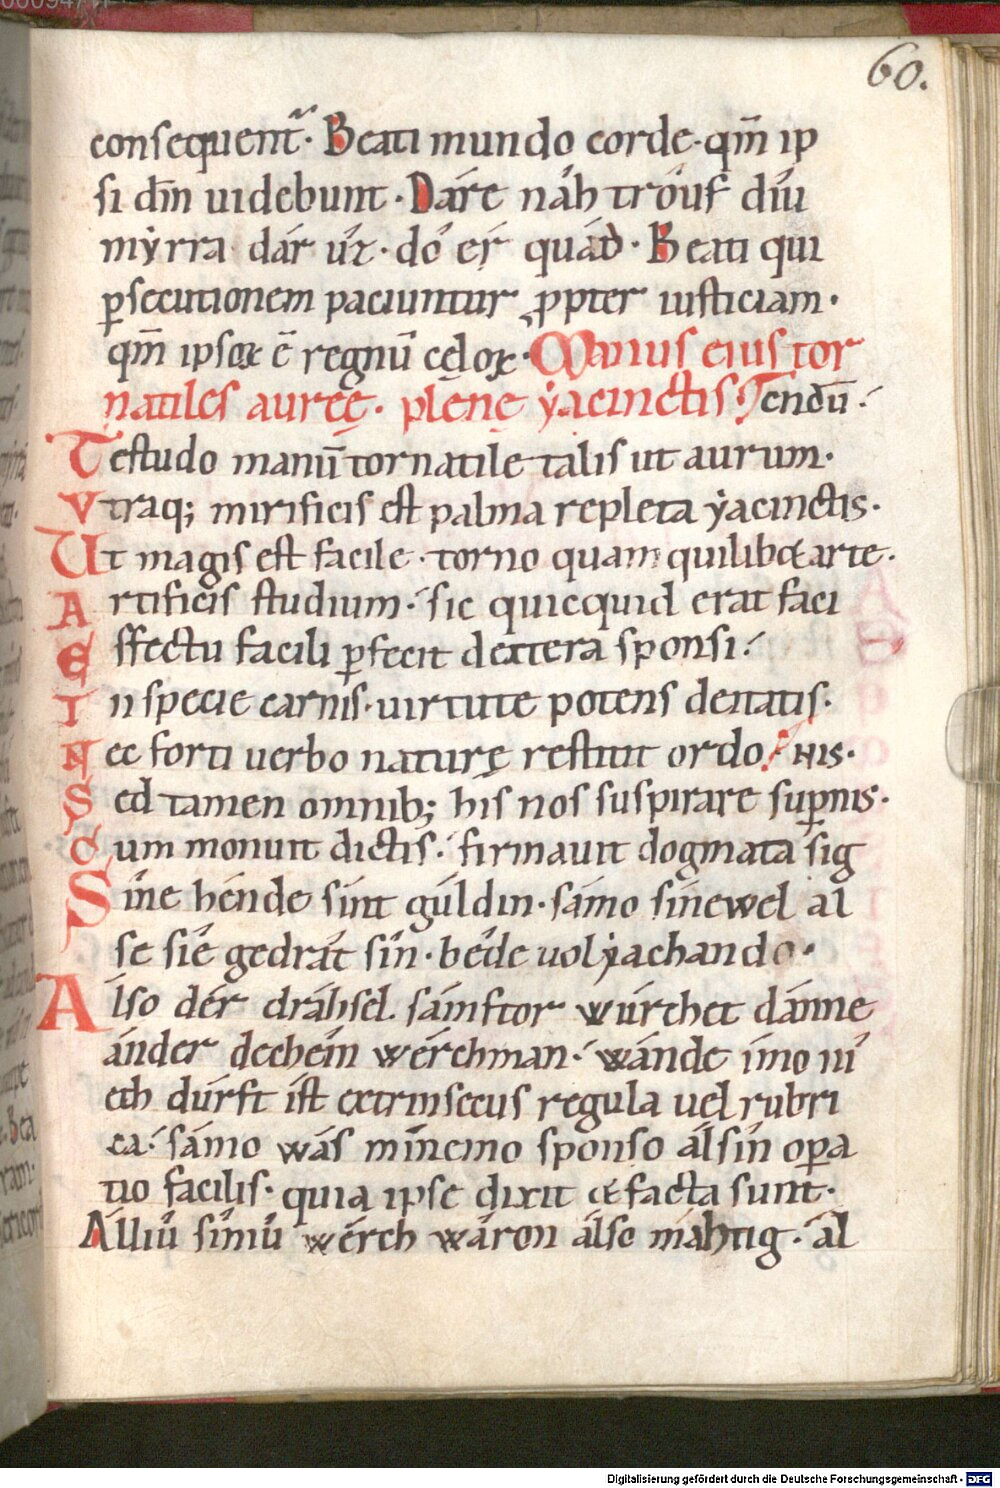 60.
consequent᷑· Beati mundo corde· qm̄ ip
si dm̄ uidebunt· Dáre náh tróuf díu
mẏrra dár úz· dó ér quád· Beati qui
ꝑsecutionem paciuntur ꝓpter iusticiam·
qm̄ ipsoꝝ ē regnū cęloꝝ· Manus eius tor
natiles aureę· plenę ẏacinctis· Tendū·
Testudo manū tornatile talis ut aurum·
Vtraq; mirificis est palma repleta ẏacinctis·
Ut magis est facile· torno quam quilibet arte·
Artificis studium· sic quicquid erat faci
Effectu facili ꝑfecit dextera sponsi·
In specie carnis· uirtute potens deitatis·
Nec forti uerbo naturę restitit ordo· HIS·
Sed tamen omnib; his nos suspirare suꝑnis·
Cum monuit dictis· firmauit dogmata sig
Síne hénde sínt gúldin· sámo sínewel al
se síe gedrát sín· béde uol ẏachando·
Álso dér dráhsel sámftor wúrchet dánne
ánder dechéin wérchman· wánde ímo ní
eth dúrft íst extrinsecus regula uel rubri
ca· sámo wás mínemo sponso álsin oꝑa
tio facilis· quia ipse dixit et facta sunt·
Álliú sínú wérch wáron álso máhtig· ál
Digitalisierung gefördert durch die Deutsche Forschungsgemeinschaft - DFG